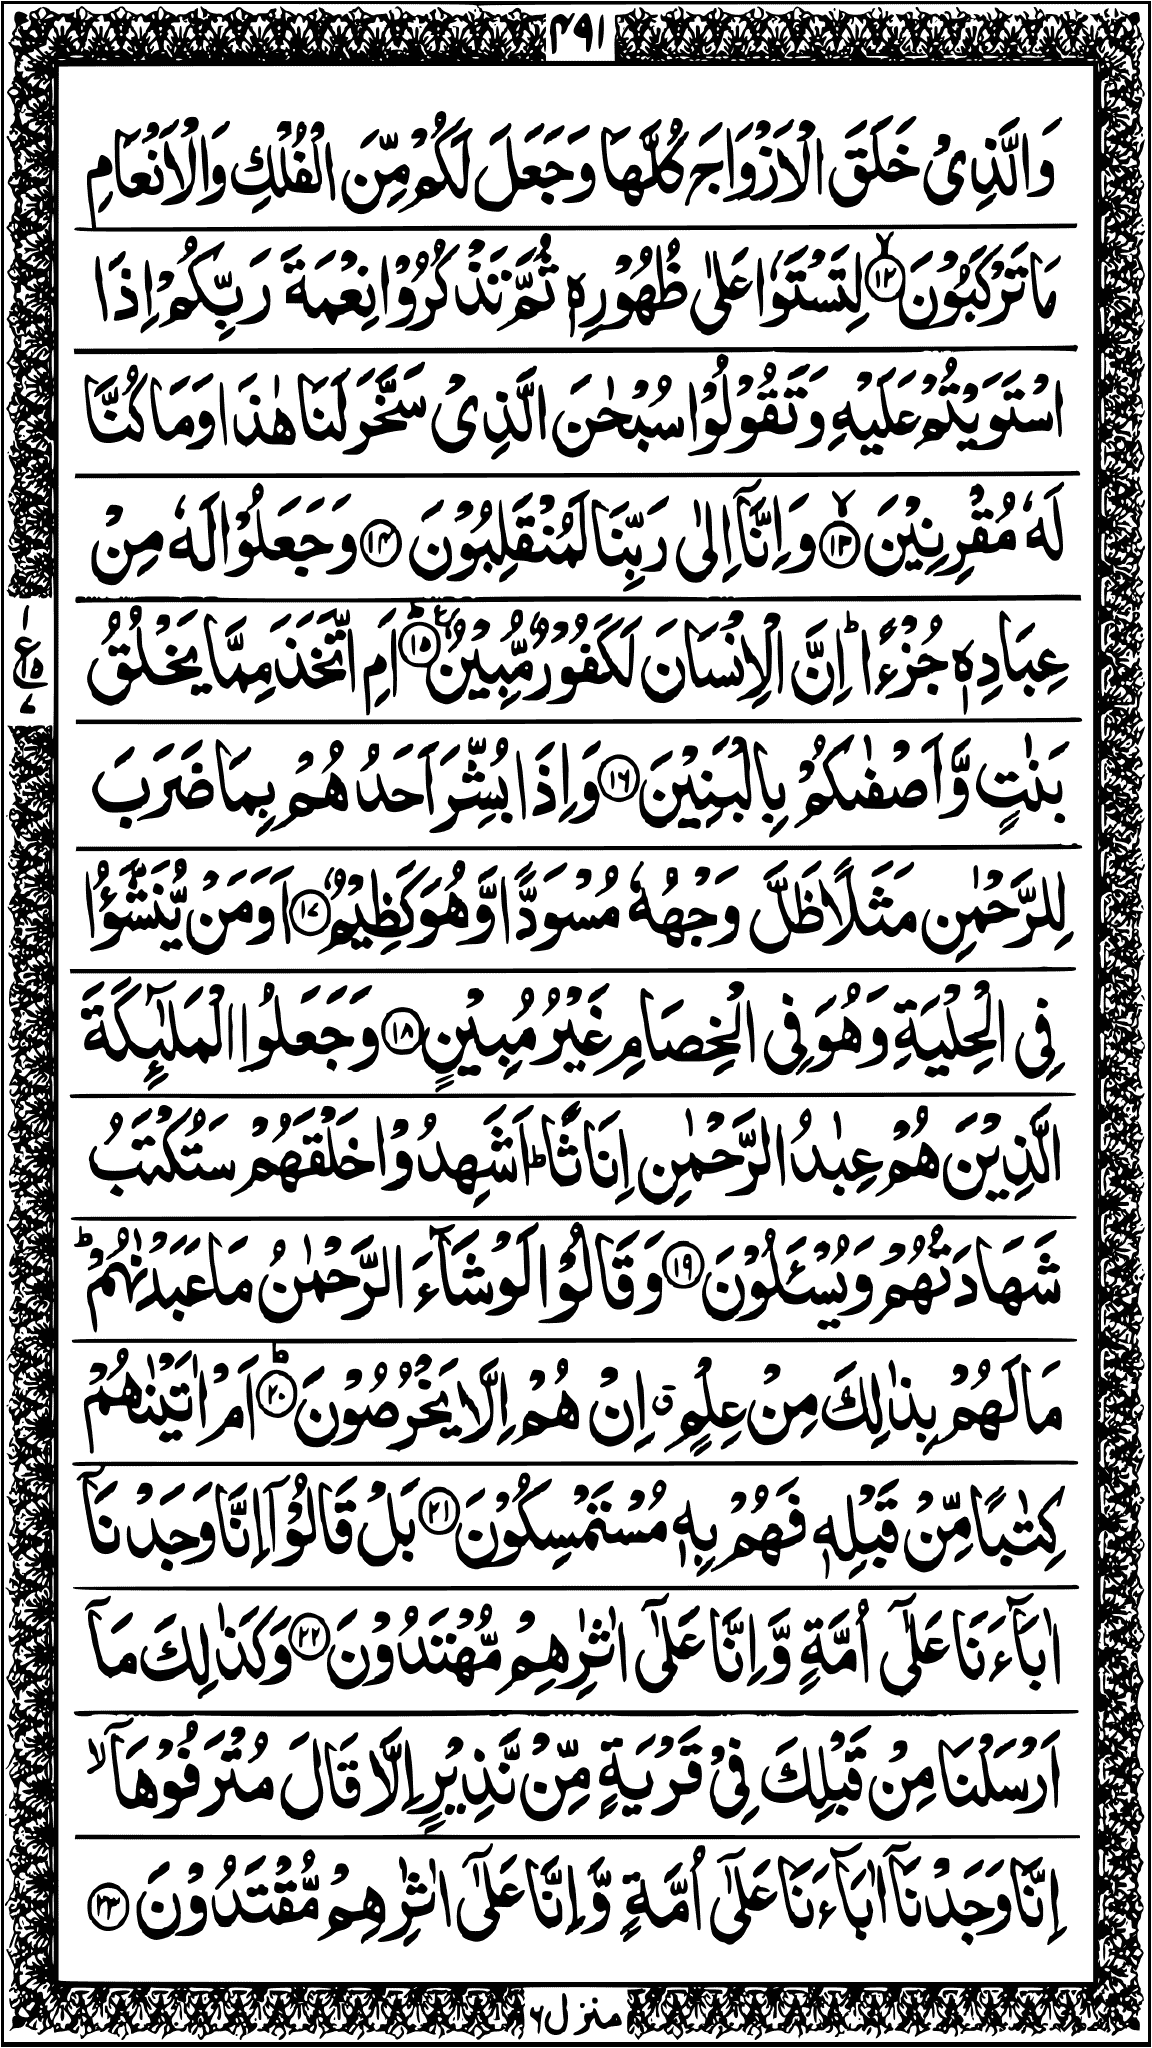 ۴۹۱
وَالَّذِیْ خَلَقَ الْاَزْوَاجَ كُلَّهَا وَجَعَلَ لَكُمْ مِّنَ الْفُلْكِ وَالْاَنْعَامِ
مَا تَرْكَبُوْنَ ۱۲ۙ لِتَسْتَوٗا عَلٰی ظُهُوْرِهٖ ثُمَّ تَذْكُرُوْا نِعْمَةَ رَبِّكُمْ اِذَا
اسْتَوَیْتُمْ عَلَیْهِ وَتَقُوْلُوْا سُبْحٰنَ الَّذِیْ سَخَّرَ لَنَا هٰذَا وَمَا كُنَّا
لَهٗ مُقْرِنِیْنَ ۱۳ۙ وَاِنَّاۤ اِلٰی رَبِّنَا لَمُنْقَلِبُوْنَ ۱۴ وَجَعَلُوْا لَهٗ مِنْ
عِبَادِهٖ جُزْءًا ؕ اِنَّ الْاِنْسَانَ لَكَفُوْرٌ مُّبِیْنٌ ۱۵ؕ ع اَمِ اتَّخَذَ مِمَّا یَخْلُقُ
۱
ع
۱۵
۷
بَنٰتٍ وَّاَصْفٰىكُمْ بِالْبَنِیْنَ ۱۶ وَاِذَا بُشِّرَ اَحَدُهُمْ بِمَا ضَرَبَ
لِلرَّحْمٰنِ مَثَلًا ظَلَّ وَجْهُهٗ مُسْوَدًّا وَّهُوَ كَظِیْمٌ ۱۷ اَوَمَنْ یُّنَشَّؤُا
فِی الْحِلْیَةِ وَهُوَ فِی الْخِصَامِ غَیْرُ مُبِیْنٍ ۱۸ وَجَعَلُوا الْمَلٰٓىِٕكَةَ
الَّذِیْنَ هُمْ عِبٰدُ الرَّحْمٰنِ اِنَاثًا ؕ اَشَهِدُوْا خَلْقَهُمْ سَتُكْتَبُ
شَهَادَتُهُمْ وَیُسْـَٔلُوْنَ ۱۹ وَقَالُوْا لَوْ شَآءَ الرَّحْمٰنُ مَا عَبَدْنٰهُمْ ؕ
مَا لَهُمْ بِذٰلِكَ مِنْ عِلْمٍ ق اِنْ هُمْ اِلَّا یَخْرُصُوْنَ ۲۰ؕ اَمْ اٰتَیْنٰهُمْ
كِتٰبًا مِّنْ قَبْلِهٖ فَهُمْ بِهٖ مُسْتَمْسِكُوْنَ ۲۱ بَلْ قَالُوْۤا اِنَّا وَجَدْنَاۤ
اٰبَآءَنَا عَلٰۤی اُمَّةٍ وَّاِنَّا عَلٰۤی اٰثٰرِهِمْ مُّهْتَدُوْنَ ۲۲ وَكَذٰلِكَ مَاۤ
اَرْسَلْنَا مِنْ قَبْلِكَ فِیْ قَرْیَةٍ مِّنْ نَّذِیْرٍ اِلَّا قَالَ مُتْرَفُوْهَاۤ ۙ
اِنَّا وَجَدْنَاۤ اٰبَآءَنَا عَلٰۤی اُمَّةٍ وَّاِنَّا عَلٰۤی اٰثٰرِهِمْ مُّقْتَدُوْنَ ۲۳
منزل ۶